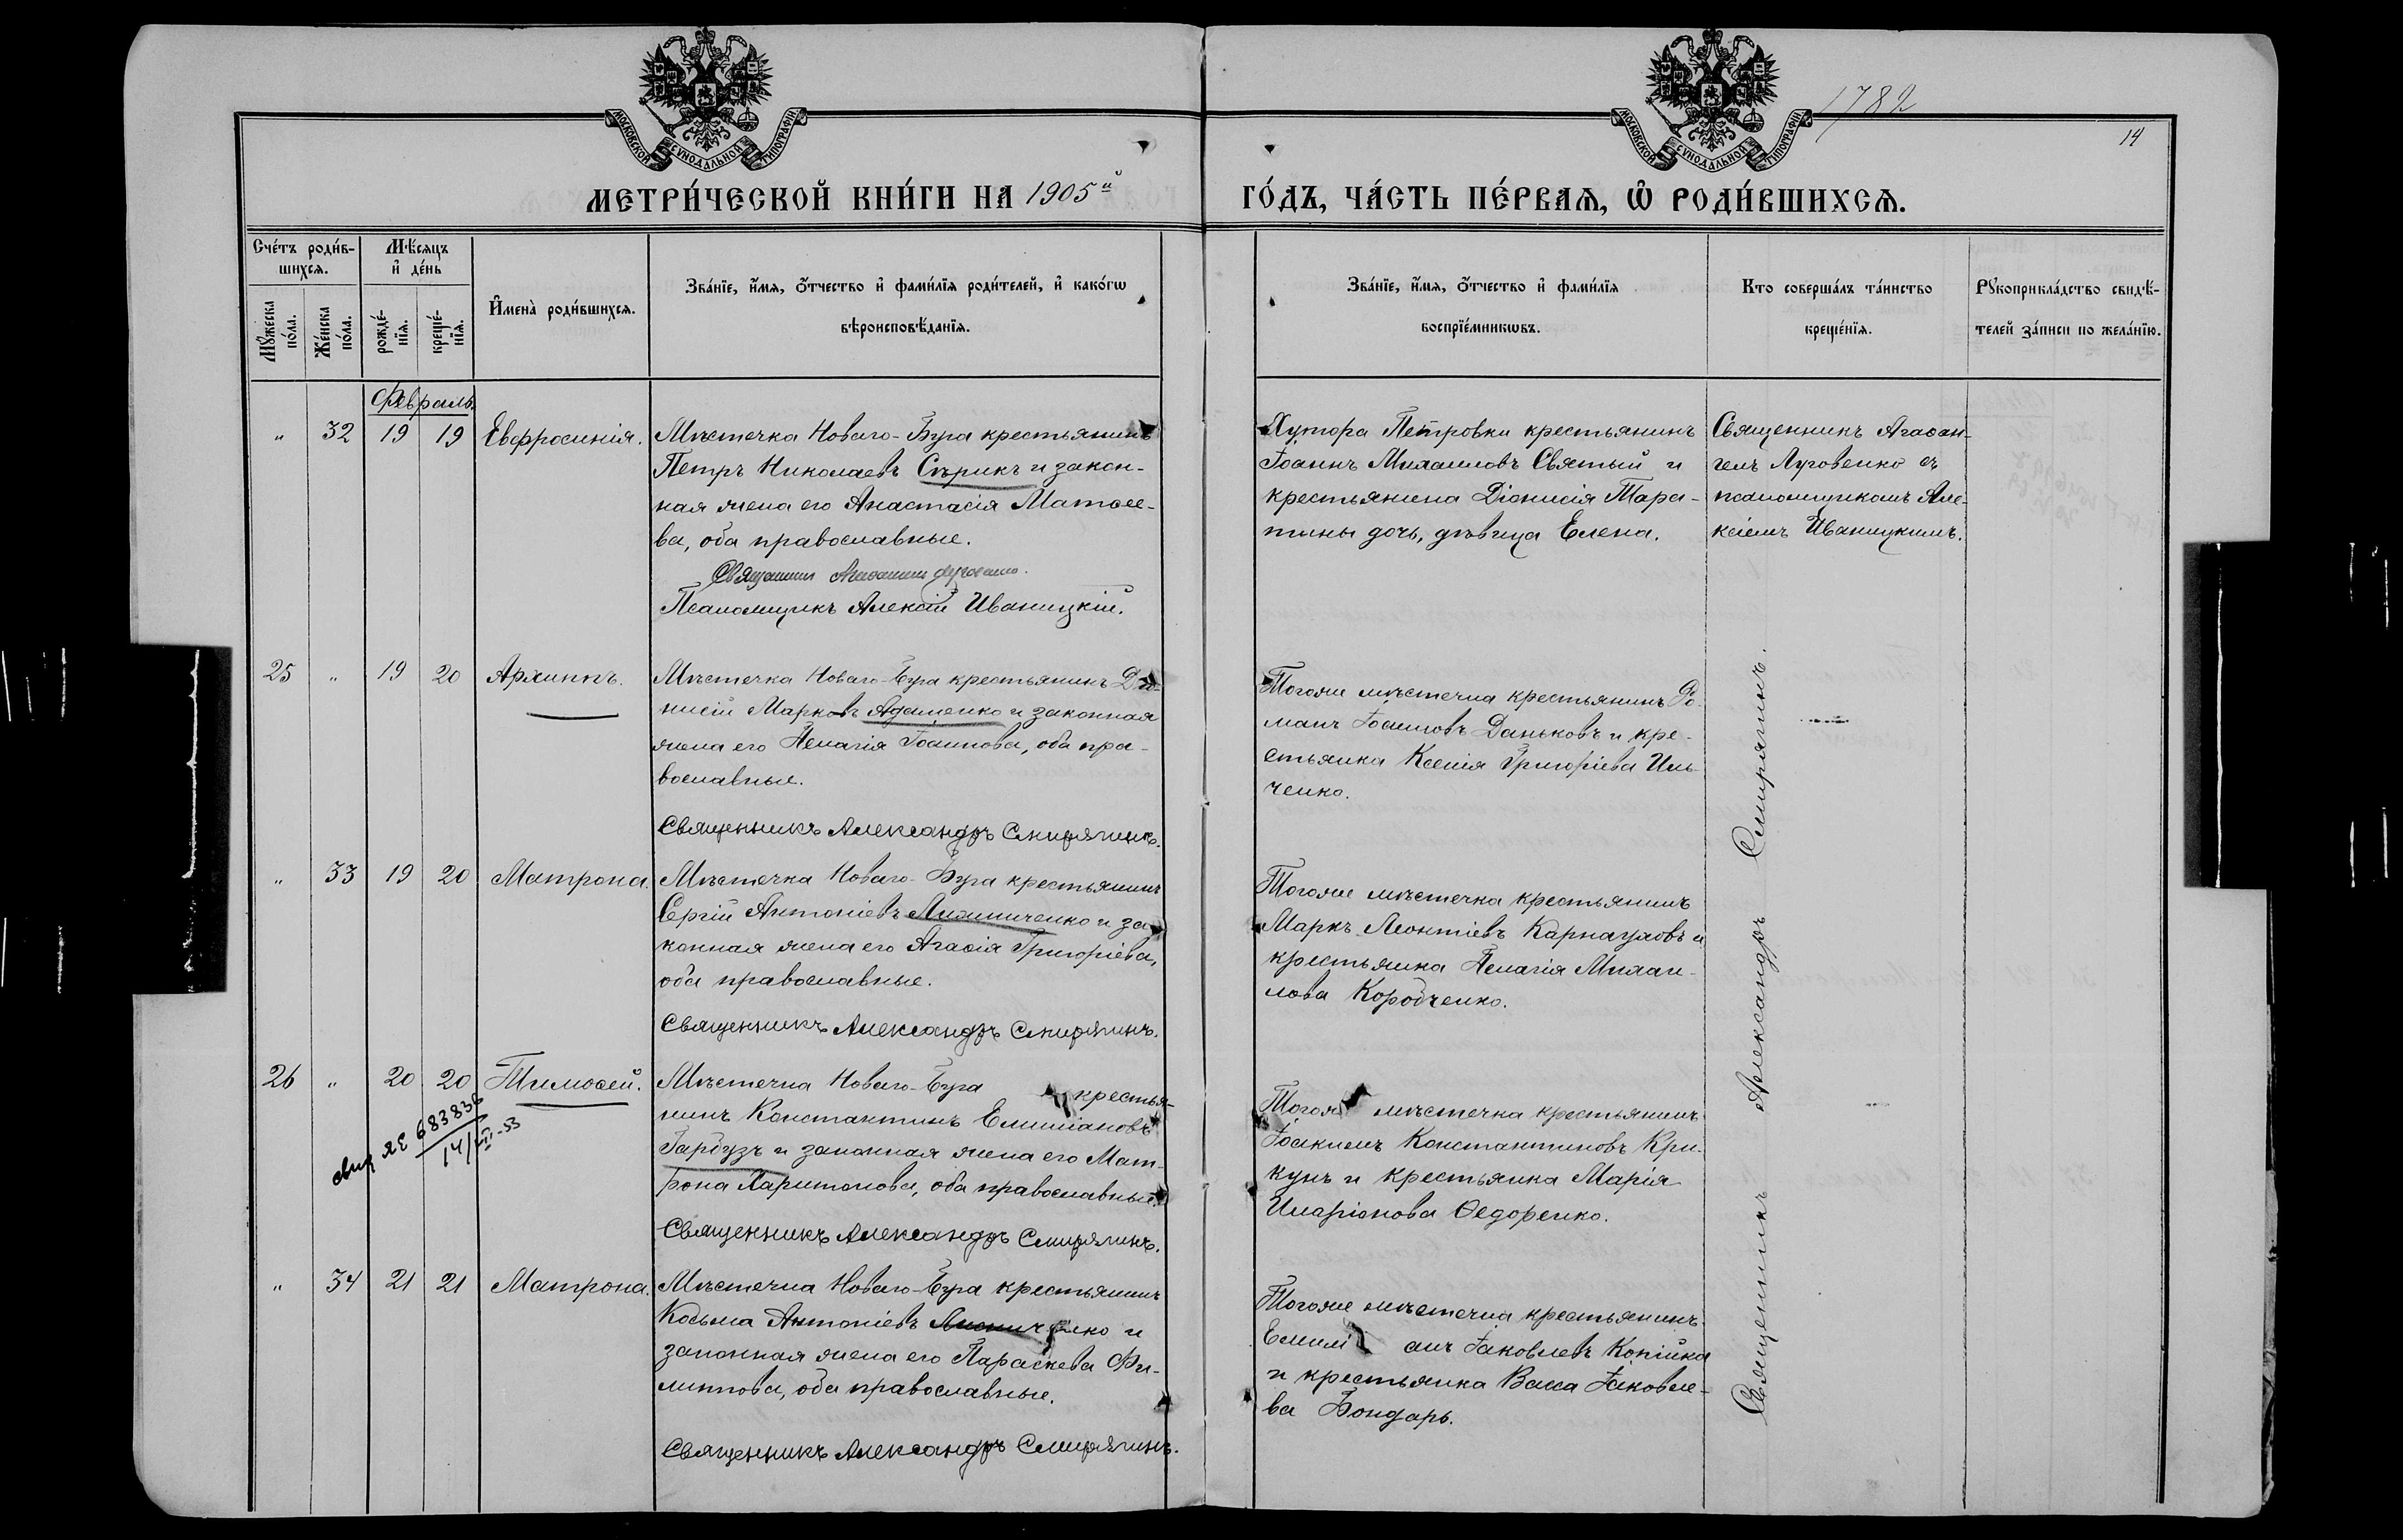 МОСКОВСКОЙ СѴНОДАЛЬНОЙ ТИПОГРАФІИ
МОСКОВСКОЙ СѴНОДАЛЬНОЙ ТИПОГРАФІИ
1782
14
МЕТРИ́ЧЕСКОЙ КНИ́ГИ НА 1905й
ГО́ДЪ, ЧА́СТЬ ПЕ́РВАѦ, Ѽ РОДИ́ВШИХСѦ.
Сче́тъ роди́в-
шихсѧ.
Мѣ́сяцъ
и҆ де́нь
Мꙋ́жеска
по́ла.
Же́нска
по́ла.
рожде́-
нїѧ.
креще́-
нїѧ.
И҆мена̀ роди́вшихсѧ.
Зва́нїе, и҆́мѧ, ѻ҆́тчество и҆ фами́лїѧ роди́телей, и҆ како́гѡ
вѣроисповѣ́данїѧ.
Зва́нїе, и҆́мѧ, ѻ҆́тчество и҆ фами́лїѧ
воспрїе́мникѡвъ.
Кто соверша́лъ та́инство
креще́нїѧ.
Рꙋкоприкла́дство свидѣ́-
телей за́писи по жела́нїю.
Февраль.
" 32 19 19 Евфросинія.
Мѣстечка Новаго-Буга крестьянинъ
Петръ Николаевъ Сѣрикъ и закон-
ная жена его Анастасія Матѳее-
ва, оба православные.
Священникъ Агаѳангелъ Луговенко.
Псаломщикъ Алексій Иваницкій.
Хутора Петровки крестьянинъ
Іоаннъ Михаиловъ Святый и
крестьянина Діонисія Тара-
тины дочь, дѣвица Елена.
Священникъ Агаѳан-
гелъ Луговенко съ
псаломщикомъ Але-
ксіемъ Иваницкимъ.
25 " 19 20 Архиппъ.
Мѣстечка Новаго-Буга крестьянинъ Діо-
нисій Марковъ Адаменко и законная
жена его Пелагія Іоаннова, оба пра-
вославные.
Священникъ Александръ Смирягинъ.
Тогоже мѣстечка крестьянинъ Ро-
манъ Іоанновъ Даньковъ и кре-
стьянка Ксенія Григоріева Иль-
ченко.
" 33 19 20 Матрона.
Мѣстечка Новаго-Буга крестьянинъ
Сергій Антоніевъ и за-
конная жена его Агаѳія Григоріева,
оба православные.
Священникъ Александръ Смирягинъ.
Тогоже мѣстечка крестьянинъ
Маркъ Леонтіевъ Карнауховъ и
крестьянка Пелагія Михаи-
лова Коробченко.
26 " 20 20 Тимоѳей.
свид ЯЕ 683836
14/VII-53
Мѣстечка Новаго-Буга крестья-
нинъ Константинъ Емиліановъ
Гарбузъ и законная жена его Мат-
рона Харитонова, оба православные.
Священникъ Александръ Смирягинъ.
Тогоже мѣстечка крестьянинъ
Іоакимъ Константиновъ Кри-
кунъ и крестьянка Марія
Иларіонова Ѳедоренко.
" 34 21 21 Матрона.
Мѣстечка Новаго-Буга крестьянинъ
Козьма Антоніевъ и
законная жена его Параскева Фи-
липпова, оба православные.
Священникъ Александръ Смирягинъ.
Тогоже мѣстечка крестьянинъ
Емилі анъ Іаковлевъ Копійка
и крестьянка Васса Іаковле-
ва Бондарь.
Священникъ Александръ Смирягинъ.